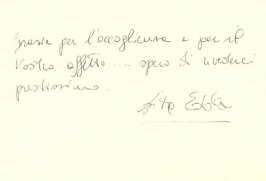 Grazie per l'accoglienza e per il
Vostro affetto.... spero di rivederci
prestissimo.
Rita Edda